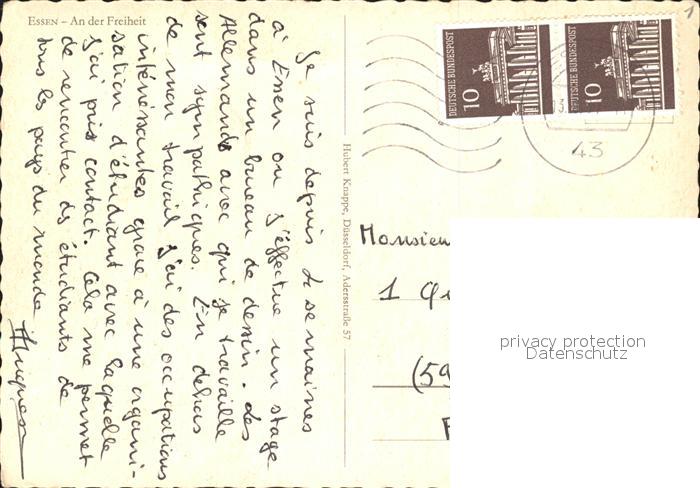 ESSEN – An der Freiheit
Je suis depuis 2 semaines
à Essen ou j'éffectue un stage
dans un bureau de dessin. Les
Allemands avec qui je travaille
sont sympathiques. En dehors
de mon travail j'ai des occupations
intéréssantes grace à une organi-
sation d'étudiant avec laquelle
j'ai pris contact. Cela me permet
de rencontrer des étudiants de
tous les pays du monde
Hugues
Hubert Knappe, Düsseldorf, Adersstraße 57
DEUTSCHE BUNDESPOST
10
DEUTSCHE BUNDESPOST
10
43
1
Monsieu
1
(59
F
privacy protection
Datenschutz